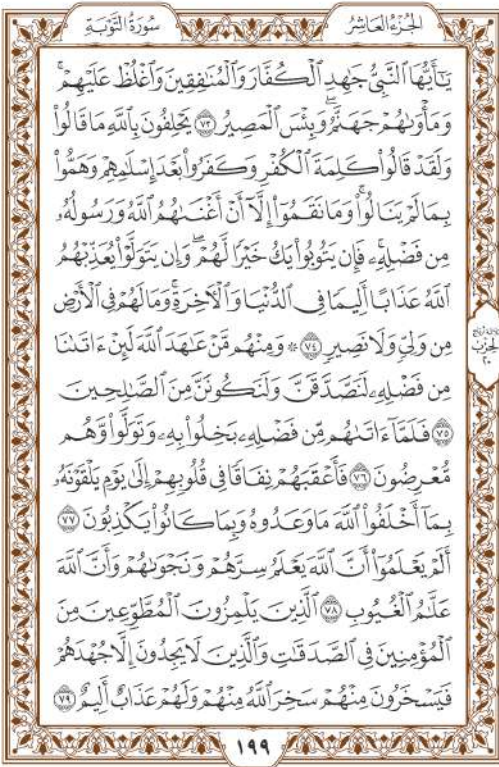 سُورَةُ التَّوْبَةِ
الجُزْءُ العَاشِرُ
يَٰٓأَيُّهَا ٱلنَّبِيُّ جَٰهِدِ ٱلۡكُفَّارَ وَٱلۡمُنَٰفِقِينَ وَٱغۡلُظۡ عَلَيۡهِمۡۚ
وَمَأۡوَىٰهُمۡ جَهَنَّمُۖ وَبِئۡسَ ٱلۡمَصِيرُ ٧٣ يَحۡلِفُونَ بِٱللَّهِ مَا قَالُواْ
وَلَقَدۡ قَالُواْ كَلِمَةَ ٱلۡكُفۡرِ وَكَفَرُواْ بَعۡدَ إِسۡلَٰمِهِمۡ وَهَمُّواْ
بِمَا لَمۡ يَنَالُواْۚ وَمَا نَقَمُوٓاْ إِلَّآ أَنۡ أَغۡنَىٰهُمُ ٱللَّهُ وَرَسُولُهُۥ
مِن فَضۡلِهِۦۚ فَإِن يَتُوبُواْ يَكُ خَيۡرٗا لَّهُمۡۖ وَإِن يَتَوَلَّوۡاْ يُعَذِّبۡهُمُ
ٱللَّهُ عَذَابًا أَلِيمٗا فِي ٱلدُّنۡيَا وَٱلۡأٓخِرَةِۚ وَمَا لَهُمۡ فِي ٱلۡأَرۡضِ
مِن وَلِيّٖ وَلَا نَصِيرٖ ٧٤ ۞ وَمِنۡهُم مَّنۡ عَٰهَدَ ٱللَّهَ لَئِنۡ ءَاتَىٰنَا
مِن فَضۡلِهِۦ لَنَصَّدَّقَنَّ وَلَنَكُونَنَّ مِنَ ٱلصَّٰلِحِينَ
٧٥ فَلَمَّآ ءَاتَىٰهُم مِّن فَضۡلِهِۦ بَخِلُواْ بِهِۦ وَتَوَلَّواْ وَّهُم
مُّعۡرِضُونَ ٧٦ فَأَعۡقَبَهُمۡ نِفَاقٗا فِي قُلُوبِهِمۡ إِلَىٰ يَوۡمِ يَلۡقَوۡنَهُۥ
بِمَآ أَخۡلَفُواْ ٱللَّهَ مَا وَعَدُوهُ وَبِمَا كَانُواْ يَكۡذِبُونَ ٧٧
أَلَمۡ يَعۡلَمُوٓاْ أَنَّ ٱللَّهَ يَعۡلَمُ سِرَّهُمۡ وَنَجۡوَىٰهُمۡ وَأَنَّ ٱللَّهَ
عَلَّٰمُ ٱلۡغُيُوبِ ٧٨ ٱلَّذِينَ يَلۡمِزُونَ ٱلۡمُطَّوِّعِينَ مِنَ
ٱلۡمُؤۡمِنِينَ فِي ٱلصَّدَقَٰتِ وَٱلَّذِينَ لَا يَجِدُونَ إِلَّا جُهۡدَهُمۡ
فَيَسۡخَرُونَ مِنۡهُمۡ سَخِرَ ٱللَّهُ مِنۡهُمۡ وَلَهُمۡ عَذَابٌ أَلِيمٌ ٧٩
الحِزْبِ
٢٠
١٩٩